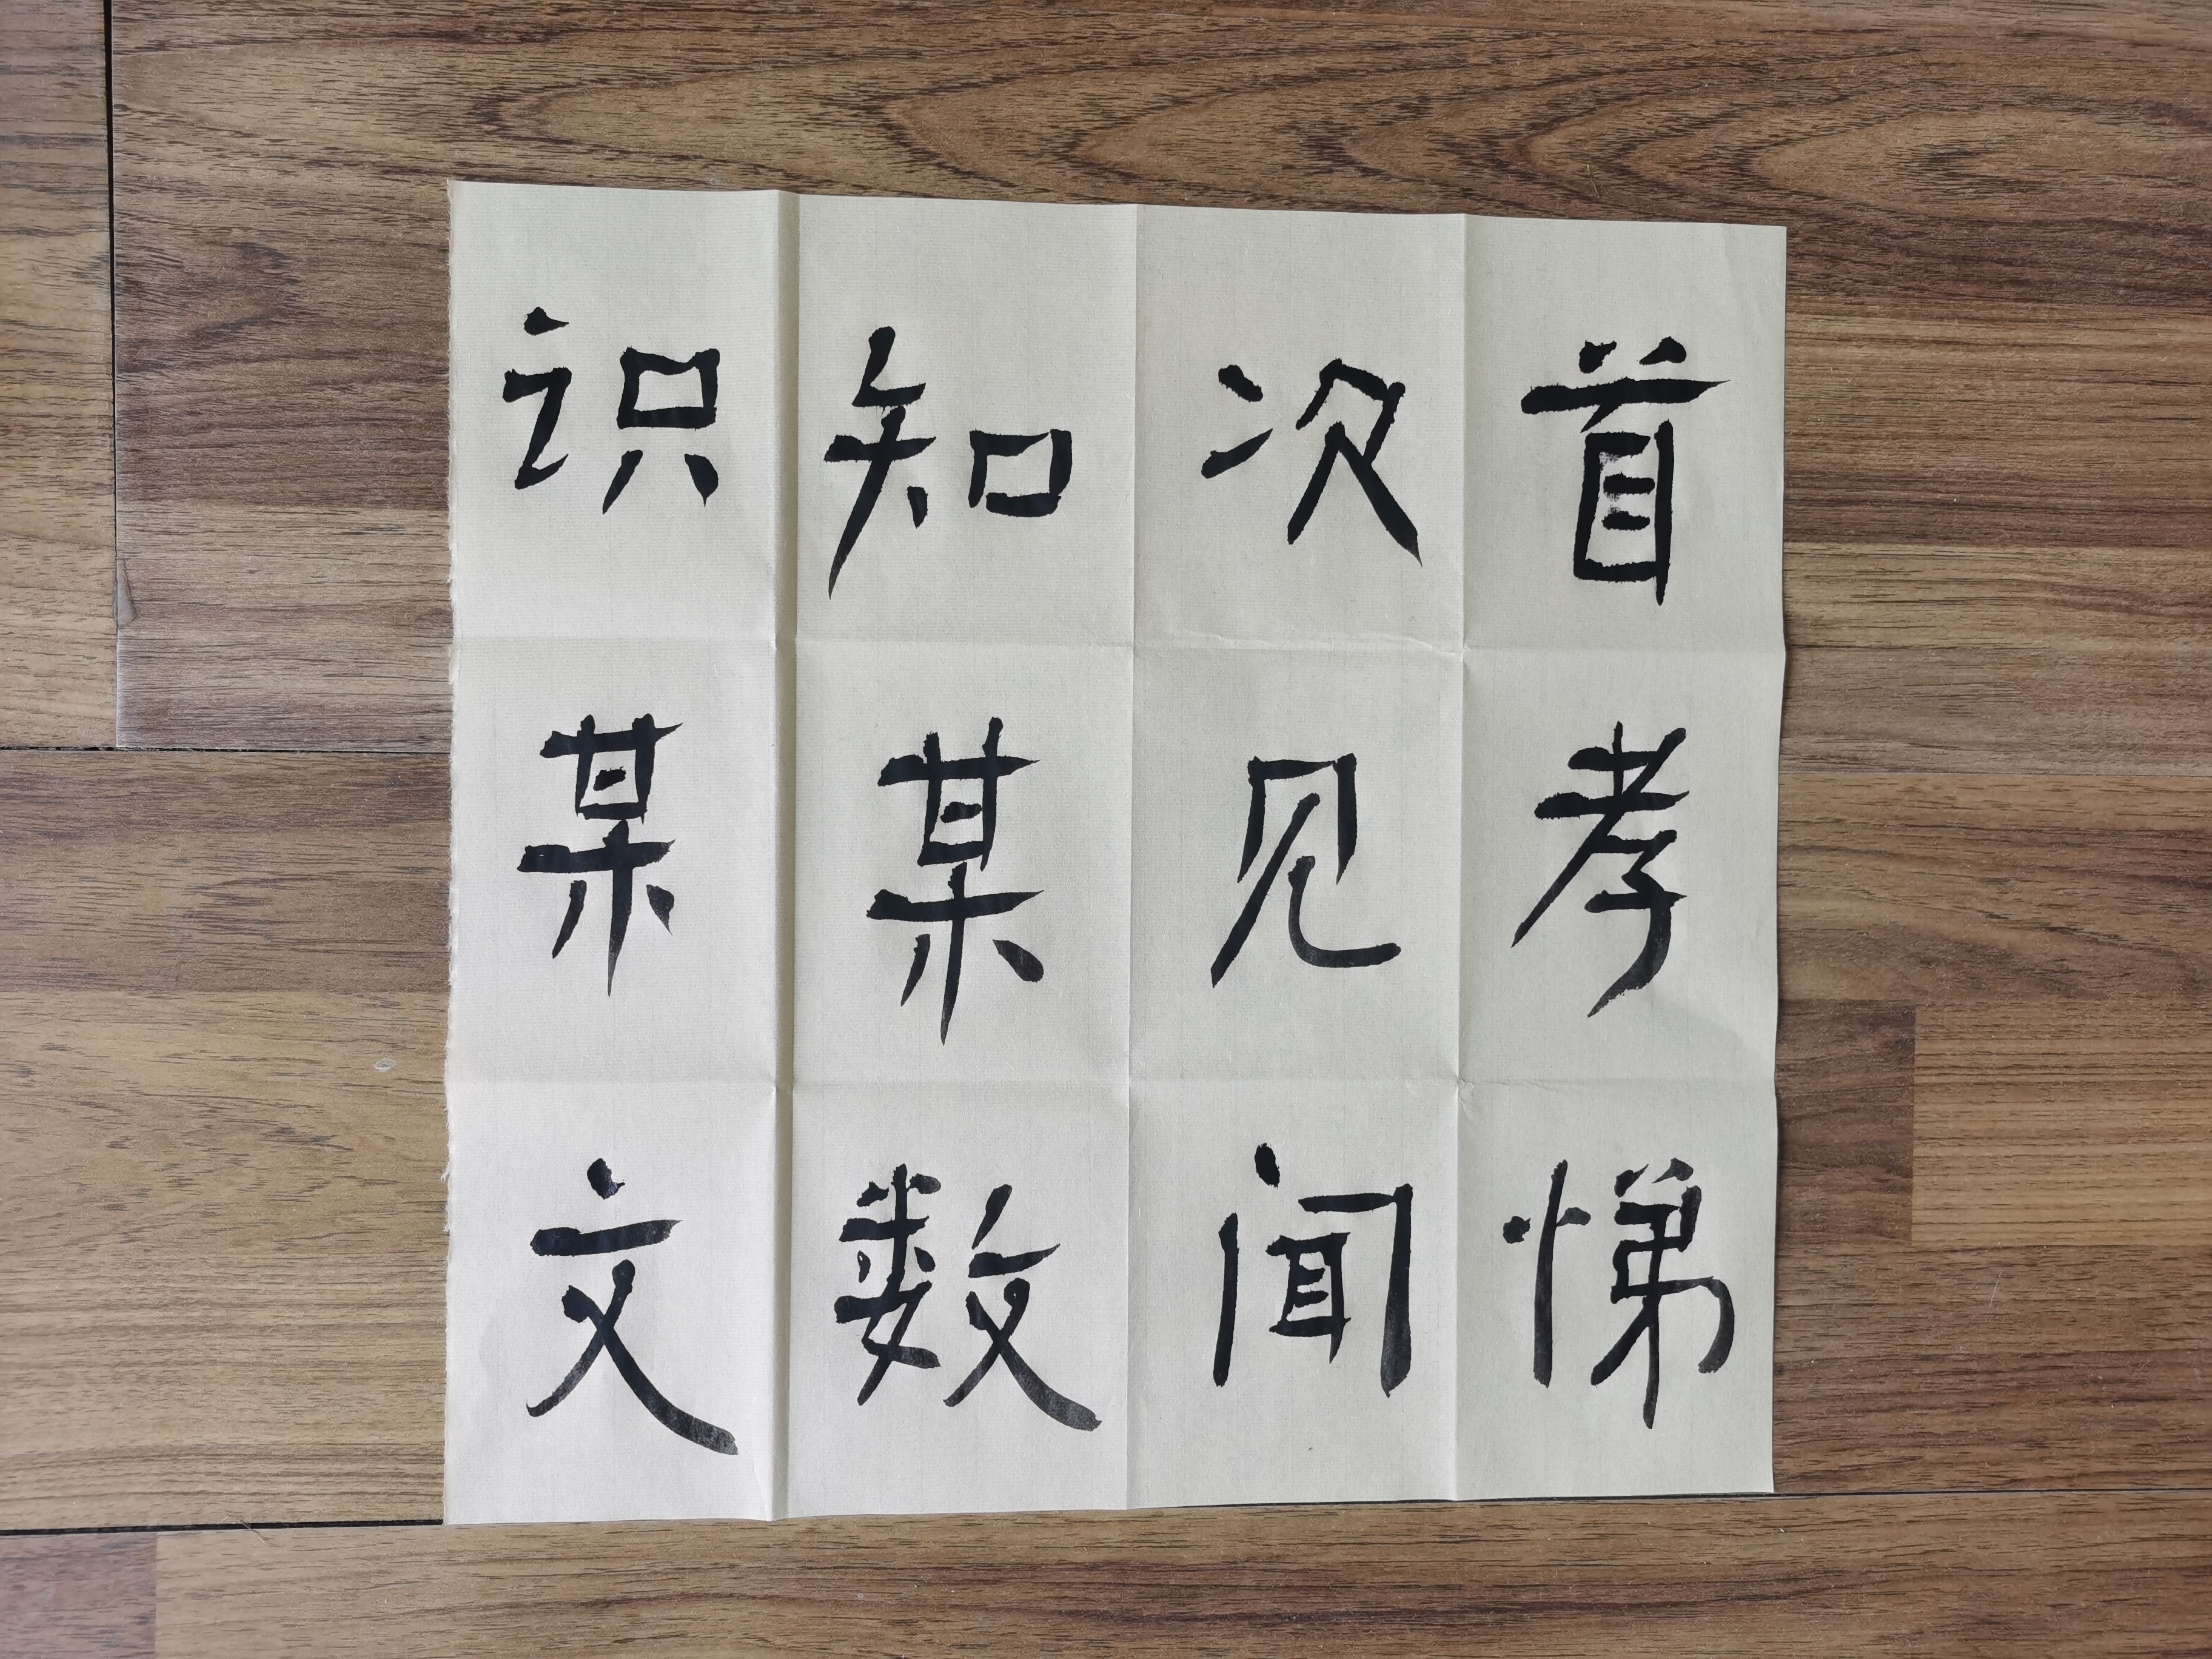 首孝悌
次见闻
知某数
识某文